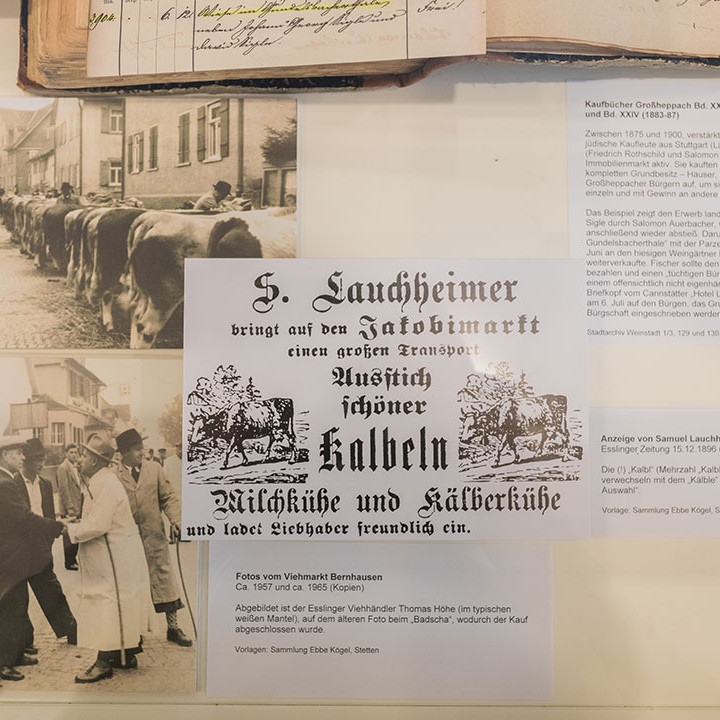 2904.
6.
12.
Wiese im Gundelsbacherthale,
neben Johann Georg Sigle und
David Sigle.
Frei!
Kaufbücher Großheppach Bd. XX
und Bd. XXIV (1883-87)
Zwischen 1875 und 1900, verstärkt
jüdische Kaufleute aus Stuttgart (L
(Friedrich Rothschild und Salomon
Immobilienmarkt aktiv. Sie kauften
kompletten Grundbesitz – Häuser,
Großheppacher Bürgern auf, um si
einzeln und mit Gewinn an andere
Das Beispiel zeigt den Erwerb land
Sigle durch Salomon Auerbacher,
anschließend wieder abstieß. Dan
Gundelsbacherthale“ mit der Parze
Juni an den hiesigen Weingärtner
weiterverkaufte. Fischer sollte den
bezahlen und einen „tüchtigen Bür
einem offensichtlich nicht eigenhä
Briefkopf vom Cannstätter „Hotel L
am 6. Juli auf den Bürgen, das Gru
Bürgschaft eingeschrieben werde
Stadtarchiv Weinstadt 1/3, 129 und 130
S. Lauchheimer
bringt auf den Jakobimarkt
einen großen Transport
Ausstich
schöner
Kalbeln
Milchkühe und Kälberkühe
und ladet Liebhaber freundlich ein.
Anzeige von Samuel Lauchh
Esslinger Zeitung 15.12.1896
Die (!) „Kalbl“ (Mehrzahl „Kalb
verwechseln mit dem „Kälble
Auswahl“.
Vorlage: Sammlung Ebbe Kögel, S
Fotos vom Viehmarkt Bernhausen
Ca. 1957 und ca. 1965 (Kopien)
Abgebildet ist der Esslinger Viehhändler Thomas Höhe (im typischen
weißen Mantel), auf dem älteren Foto beim „Badscha“, wodurch der Kauf
abgeschlossen wurde.
Vorlagen: Sammlung Ebbe Kögel, Stetten